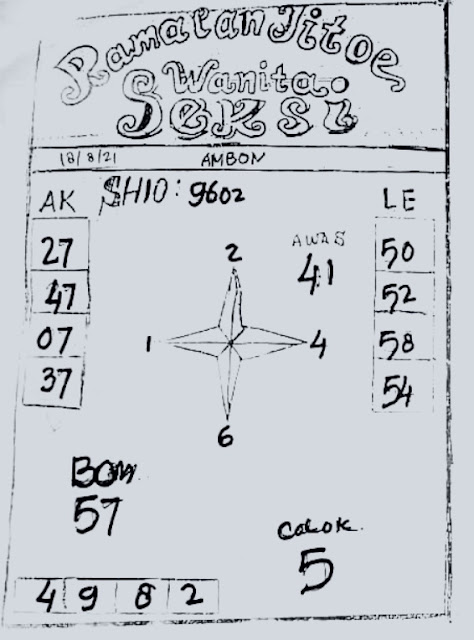 Ramalan Jitoe
Wanita
Seksi
18/8/21 AMBON
AK SHIO: 9602 LE
AWAS
27 2 41 50
47 52
07 1 4 58
37 54
6
BOM
57
Colok
5
4 9 8 2